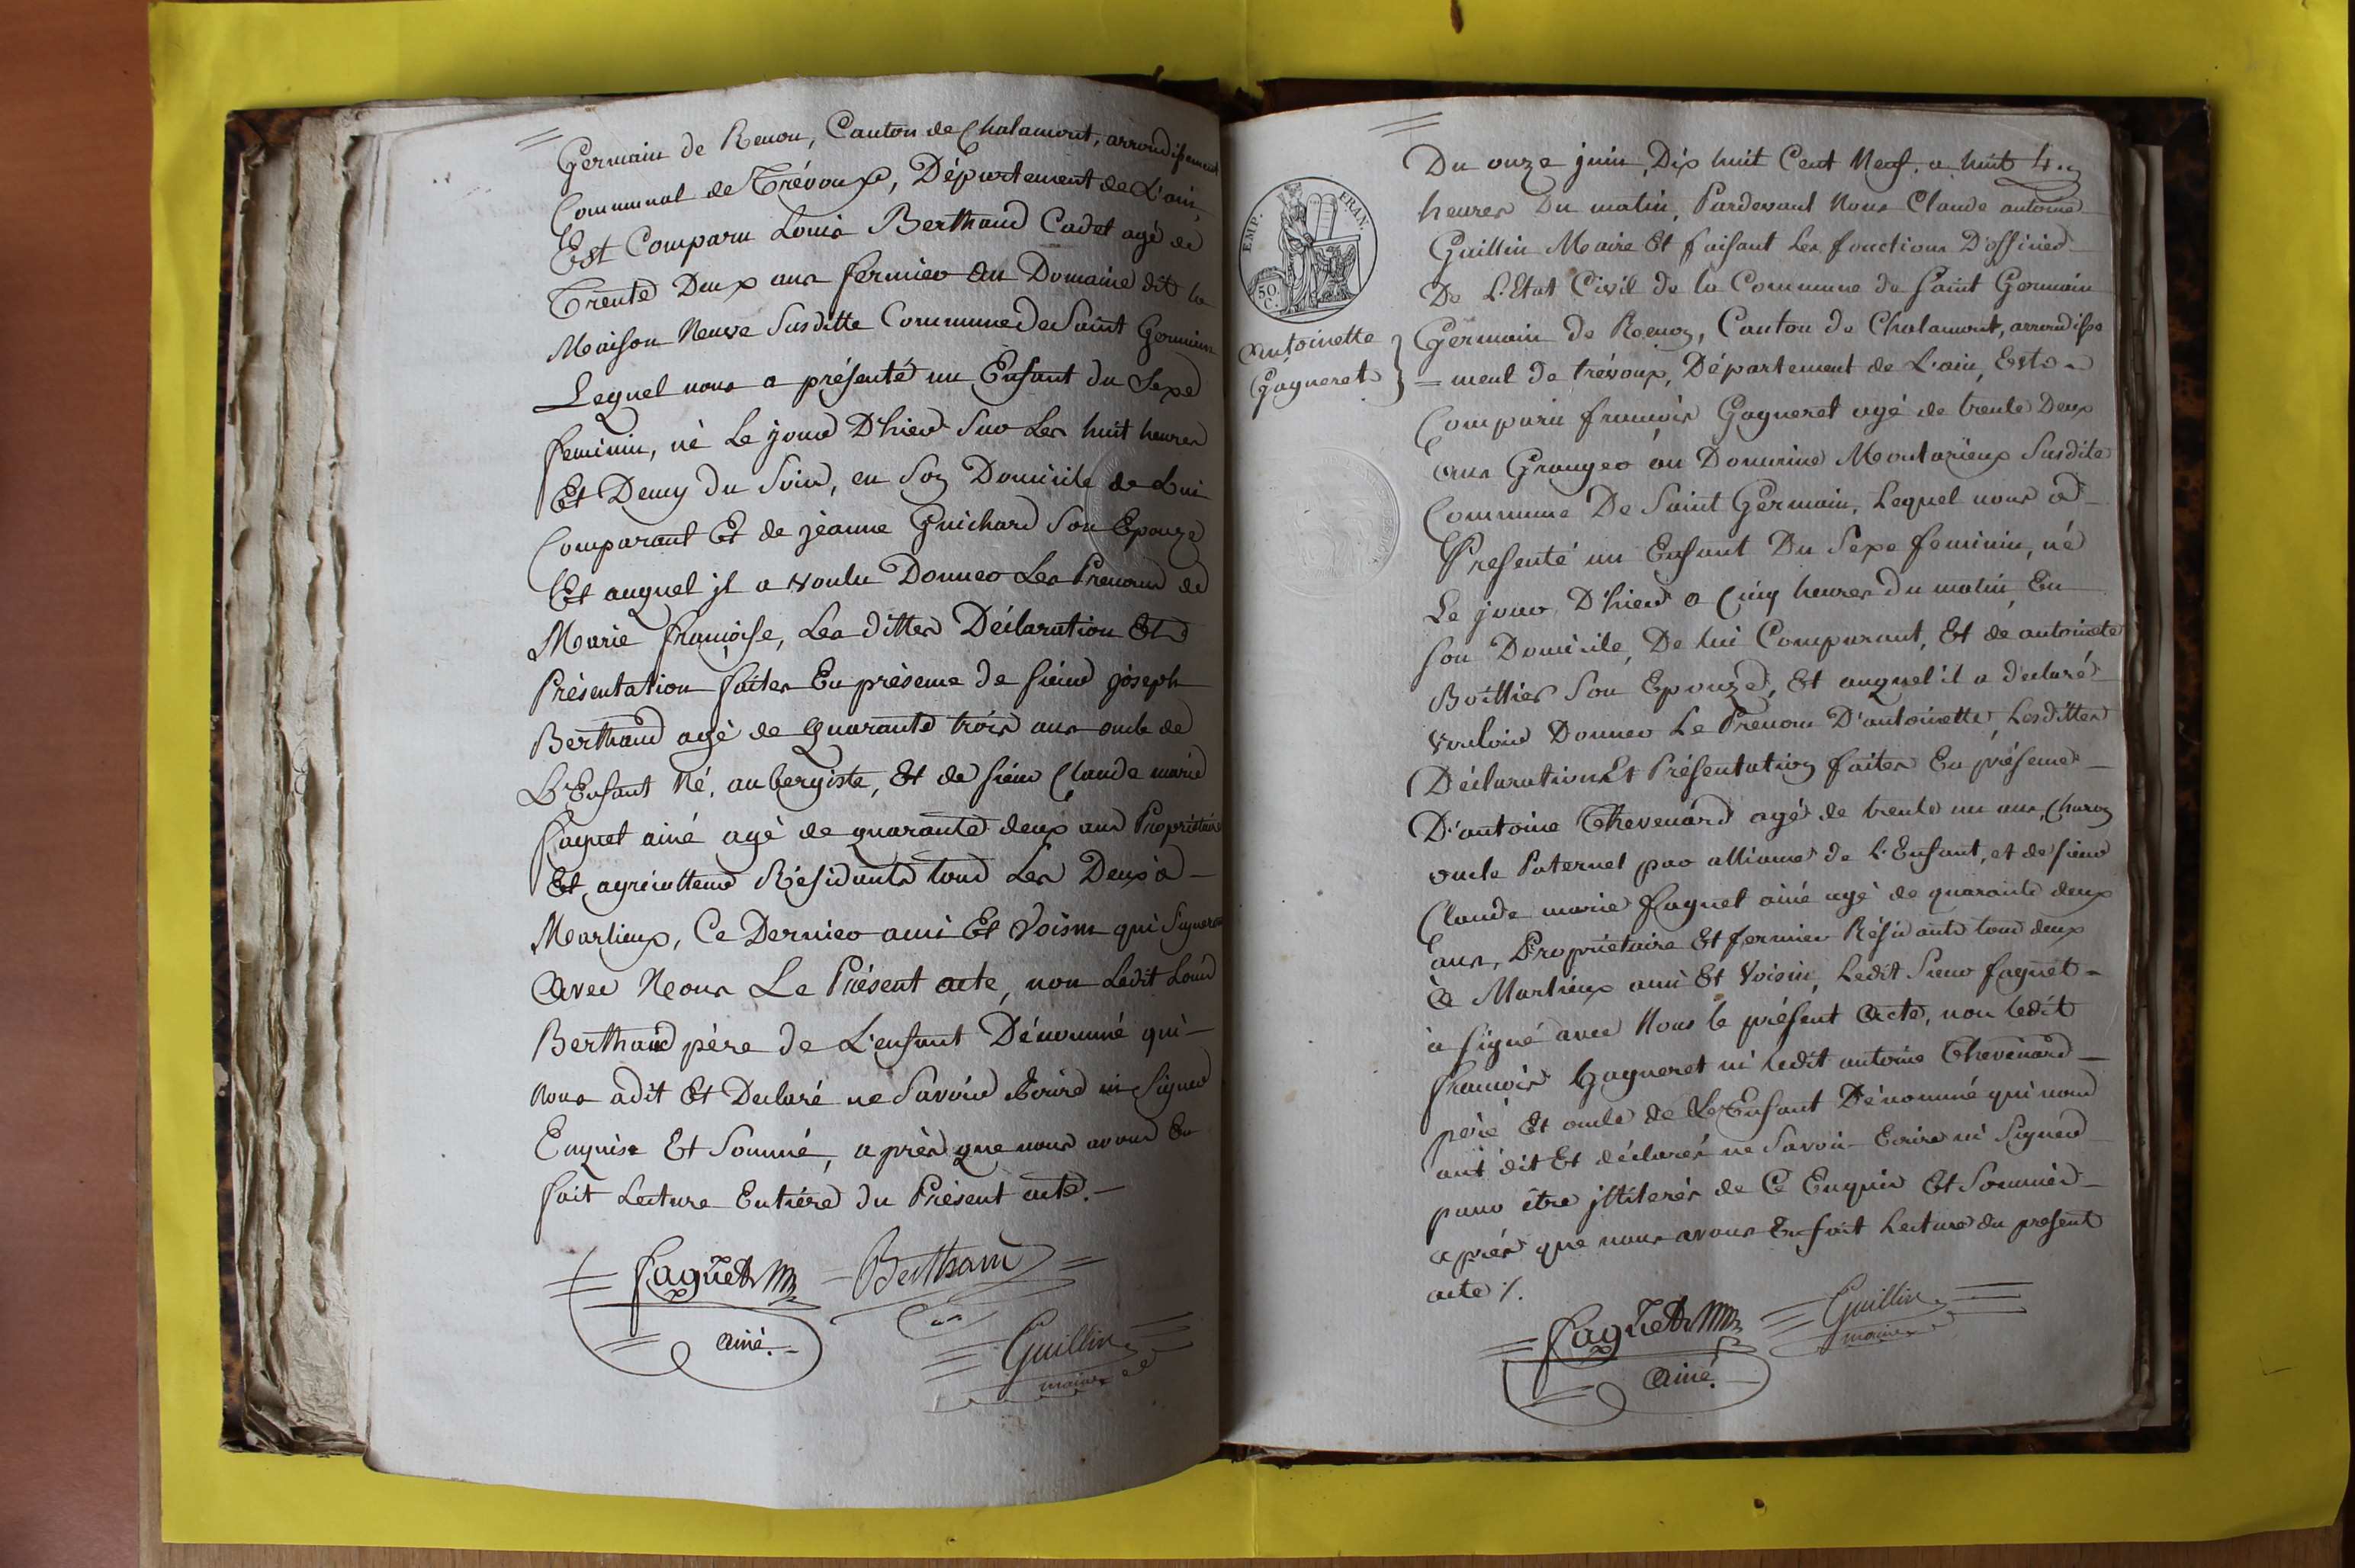 Germain de Renon, Canton de Chalamont, arrondissement
Communal de Trévoux, Département de L'ain,
Est Comparu Louis Berthaud Cadet agé de
Trente Deux ans fermier au Domaine dit la
Maison Neuve Susditte Commune de Saint Germain
Lequel nous a présenté un Enfant du Sexe
feminin, né Le jour D'hier Sur Les huit heures
Et Demy du Soir, en Son Domicile de Lui
Comparant Et de jeanne Guichard Son Epouze
Et auquel jl a voulu Donner Les Prenoms de
Marie françoise, Les dittes Déclaration Et
Présentation faites En présence de Sieur joseph
Berthaud agé de quarante trois ans oncle de
L'Enfant Né, aubergiste, Et de Sieur Claude marie
faguet ainé agé de quarante deux ans Propriétaire
Et agriculteur Résidants tous Les Deux à
Marlieux, Ce Dernier ami Et Voisin qui Signeront
Avec Nous Le Présent acte, non Ledit Louis
Berthaud père de L'enfant Dénommé qui
nous adit Et Declaré ne Savoir Ecrire ni Signer
Enquise Et Sommé, après que nous avons En
fait Lecture Entiére du Présent acte.
faguet Berthaud
ainé.
Guillin
maire
EMP. FRAN.
50 C.
Antoinette
Gagneret
Du onze juin, Dix huit Cent Neuf, a huit
heures Du matin, Pardevant Nous Claude antoine
Guillin Maire Et faisant Les fonctions D'officier
De L'Etat Civil de la Commune de Saint Germain
Germain de Renon, Canton de Chalamont, arrondisse
=ment de trévoux, Département de L'ain, Est
Comparu françois Gagneret agé de trente Deux
ans Granger au Domaine Montarieux Susdite
Commune De Saint Germain, Lequel nous a
Presenté un Enfant Du Sexe feminin, né
Le jour D'hier a Cinq heures du matin, En
Son Domicile, De lui Comparant, Et de antoinette
Boittier Son Epouze, Et auquel il a déclaré
vouloir Donner Le Prenom D'antoinette, Lesdittes
Déclaration Et Présentation faites En présence
D'antoine Thevenard agé de trente un ans, Charon
oncle Paternel par alliance de L'Enfant, et de Sieur
Claude marie faguet ainé agé de quarante deux
ans, Propriétaire Et fermier Résidants tous deux
à Marlieux ami Et Voisin, Ledit Sieur faguet
à Signé avec Nous le présent Acte, non ledit
françois Gagneret ni ledit antoine Thevenard
père Et oncle de L'Enfant Dénommé qui nous
ont dit Et déclarés ne Savoir Ecrire ni Signer
pour être jlliterés de Ce Enquis Et Sommés
après que nous avons En fait Lecture du present
acte ./.
faguet Guillin
ainé. maire